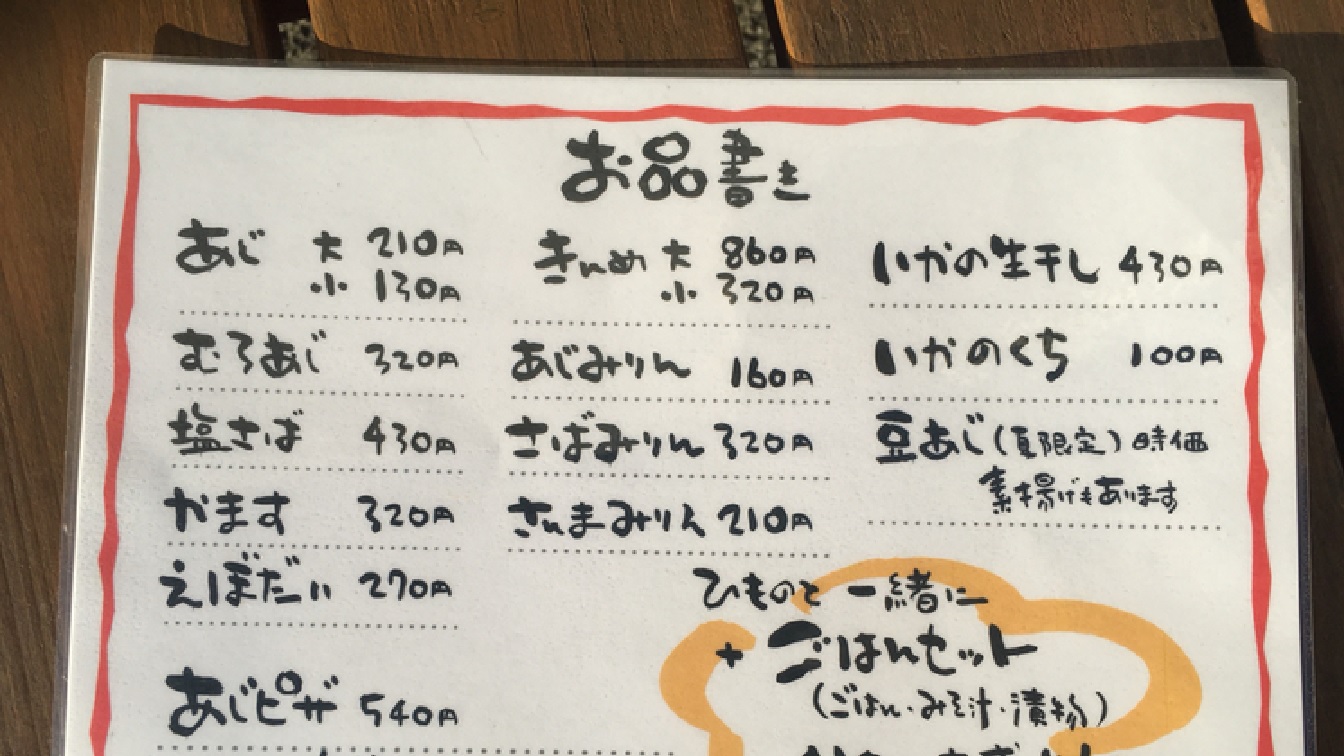 お品書き
あじ 大 210円
小 130円
むろあじ 320円
塩さば 430円
かます 320円
えぼだい 270円
あじピザ 540円
きんめ 大 860円
小 320円
あじみりん 160円
さばみりん 320円
さんまみりん 210円
いかの生干し 430円
いかのくち 100円
豆あじ(夏限定)時価
素揚げもあります
ひものと一緒に
+ ごはんセット
(ごはん・みそ汁・漬物)